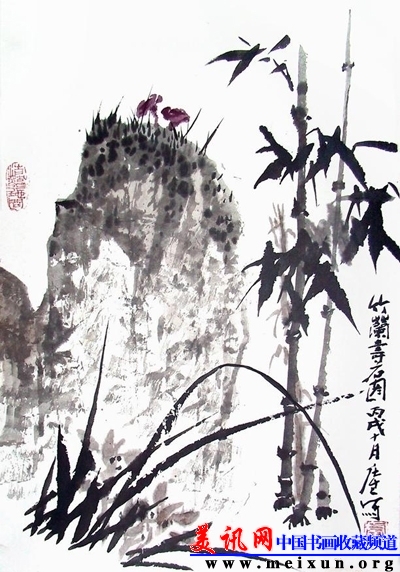 竹蘭壽石图丙戌十月写
美讯网 中国书画收藏频道
www.meixun.org